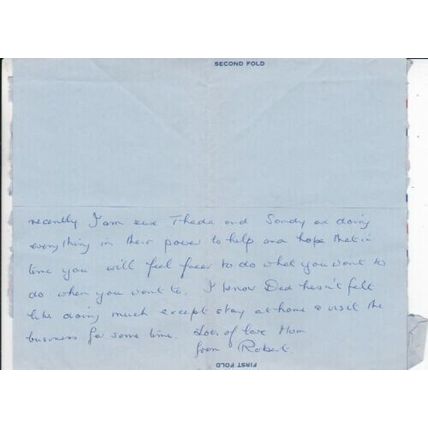 SECOND FOLD
recently I am sure Theda and Sandy are doing
everything in their power to help and hope that in
time you will feel freer to do what you want to
do when you want to. I know Dad hasn't felt
like doing much except stay at home & visit the
business for some time. Lots of love Mum
from Robert
FIRST FOLD